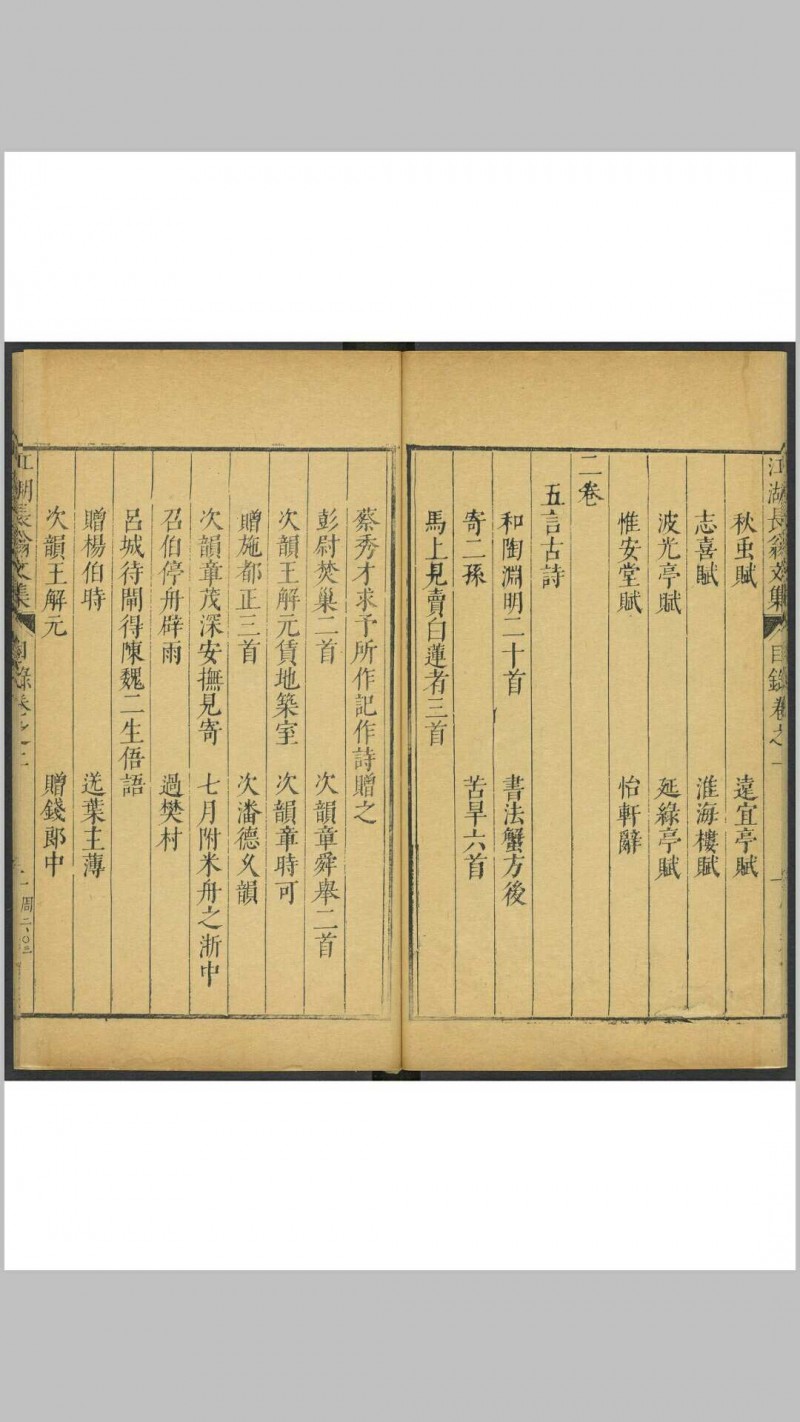 江湖長翁文集 目錄卷之一
秋虫賦 遠宜亭賦
志喜賦 淮海樓賦
波光亭賦 延綠亭賦
惟安堂賦 怡軒辭
二卷
五言古詩
和陶淵明二十首 書法蟹方後
寄二孫 苦旱六首
馬上見賣白蓮者三首
蔡秀才求予所作記作詩贈之
彭尉焚巢二首 次韻章舜舉二首
次韻王解元賃地築室 次韻章時可
贈施都正三首 次潘德久韻
次韻章茂深安撫見寄 七月附米舟之浙中
召伯停舟辟雨 過樊村
呂城待閘得陳魏二生俉語
贈楊伯時 送葉主薄
次韻王解元 贈錢郎中
江湖長翁文集 目錄卷之二